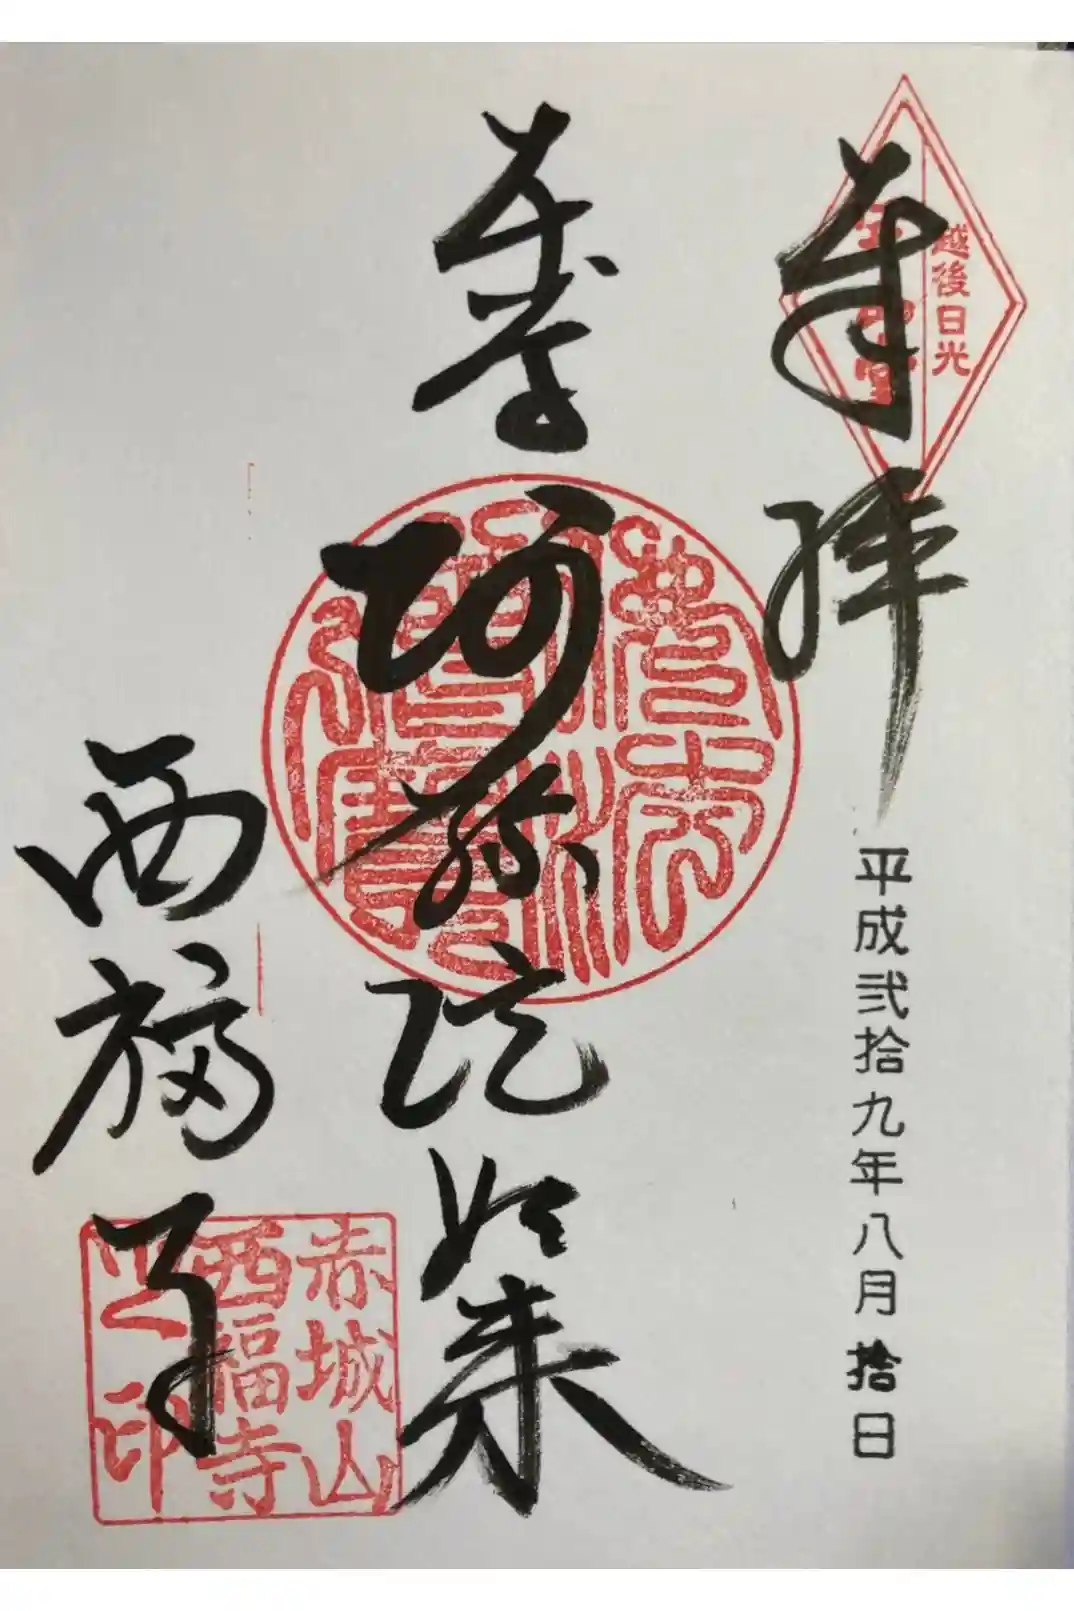 奉拝
越後日光
平成弐拾九年八月拾日
阿弥陀如来
西福寺
赤城山
西福寺
之印